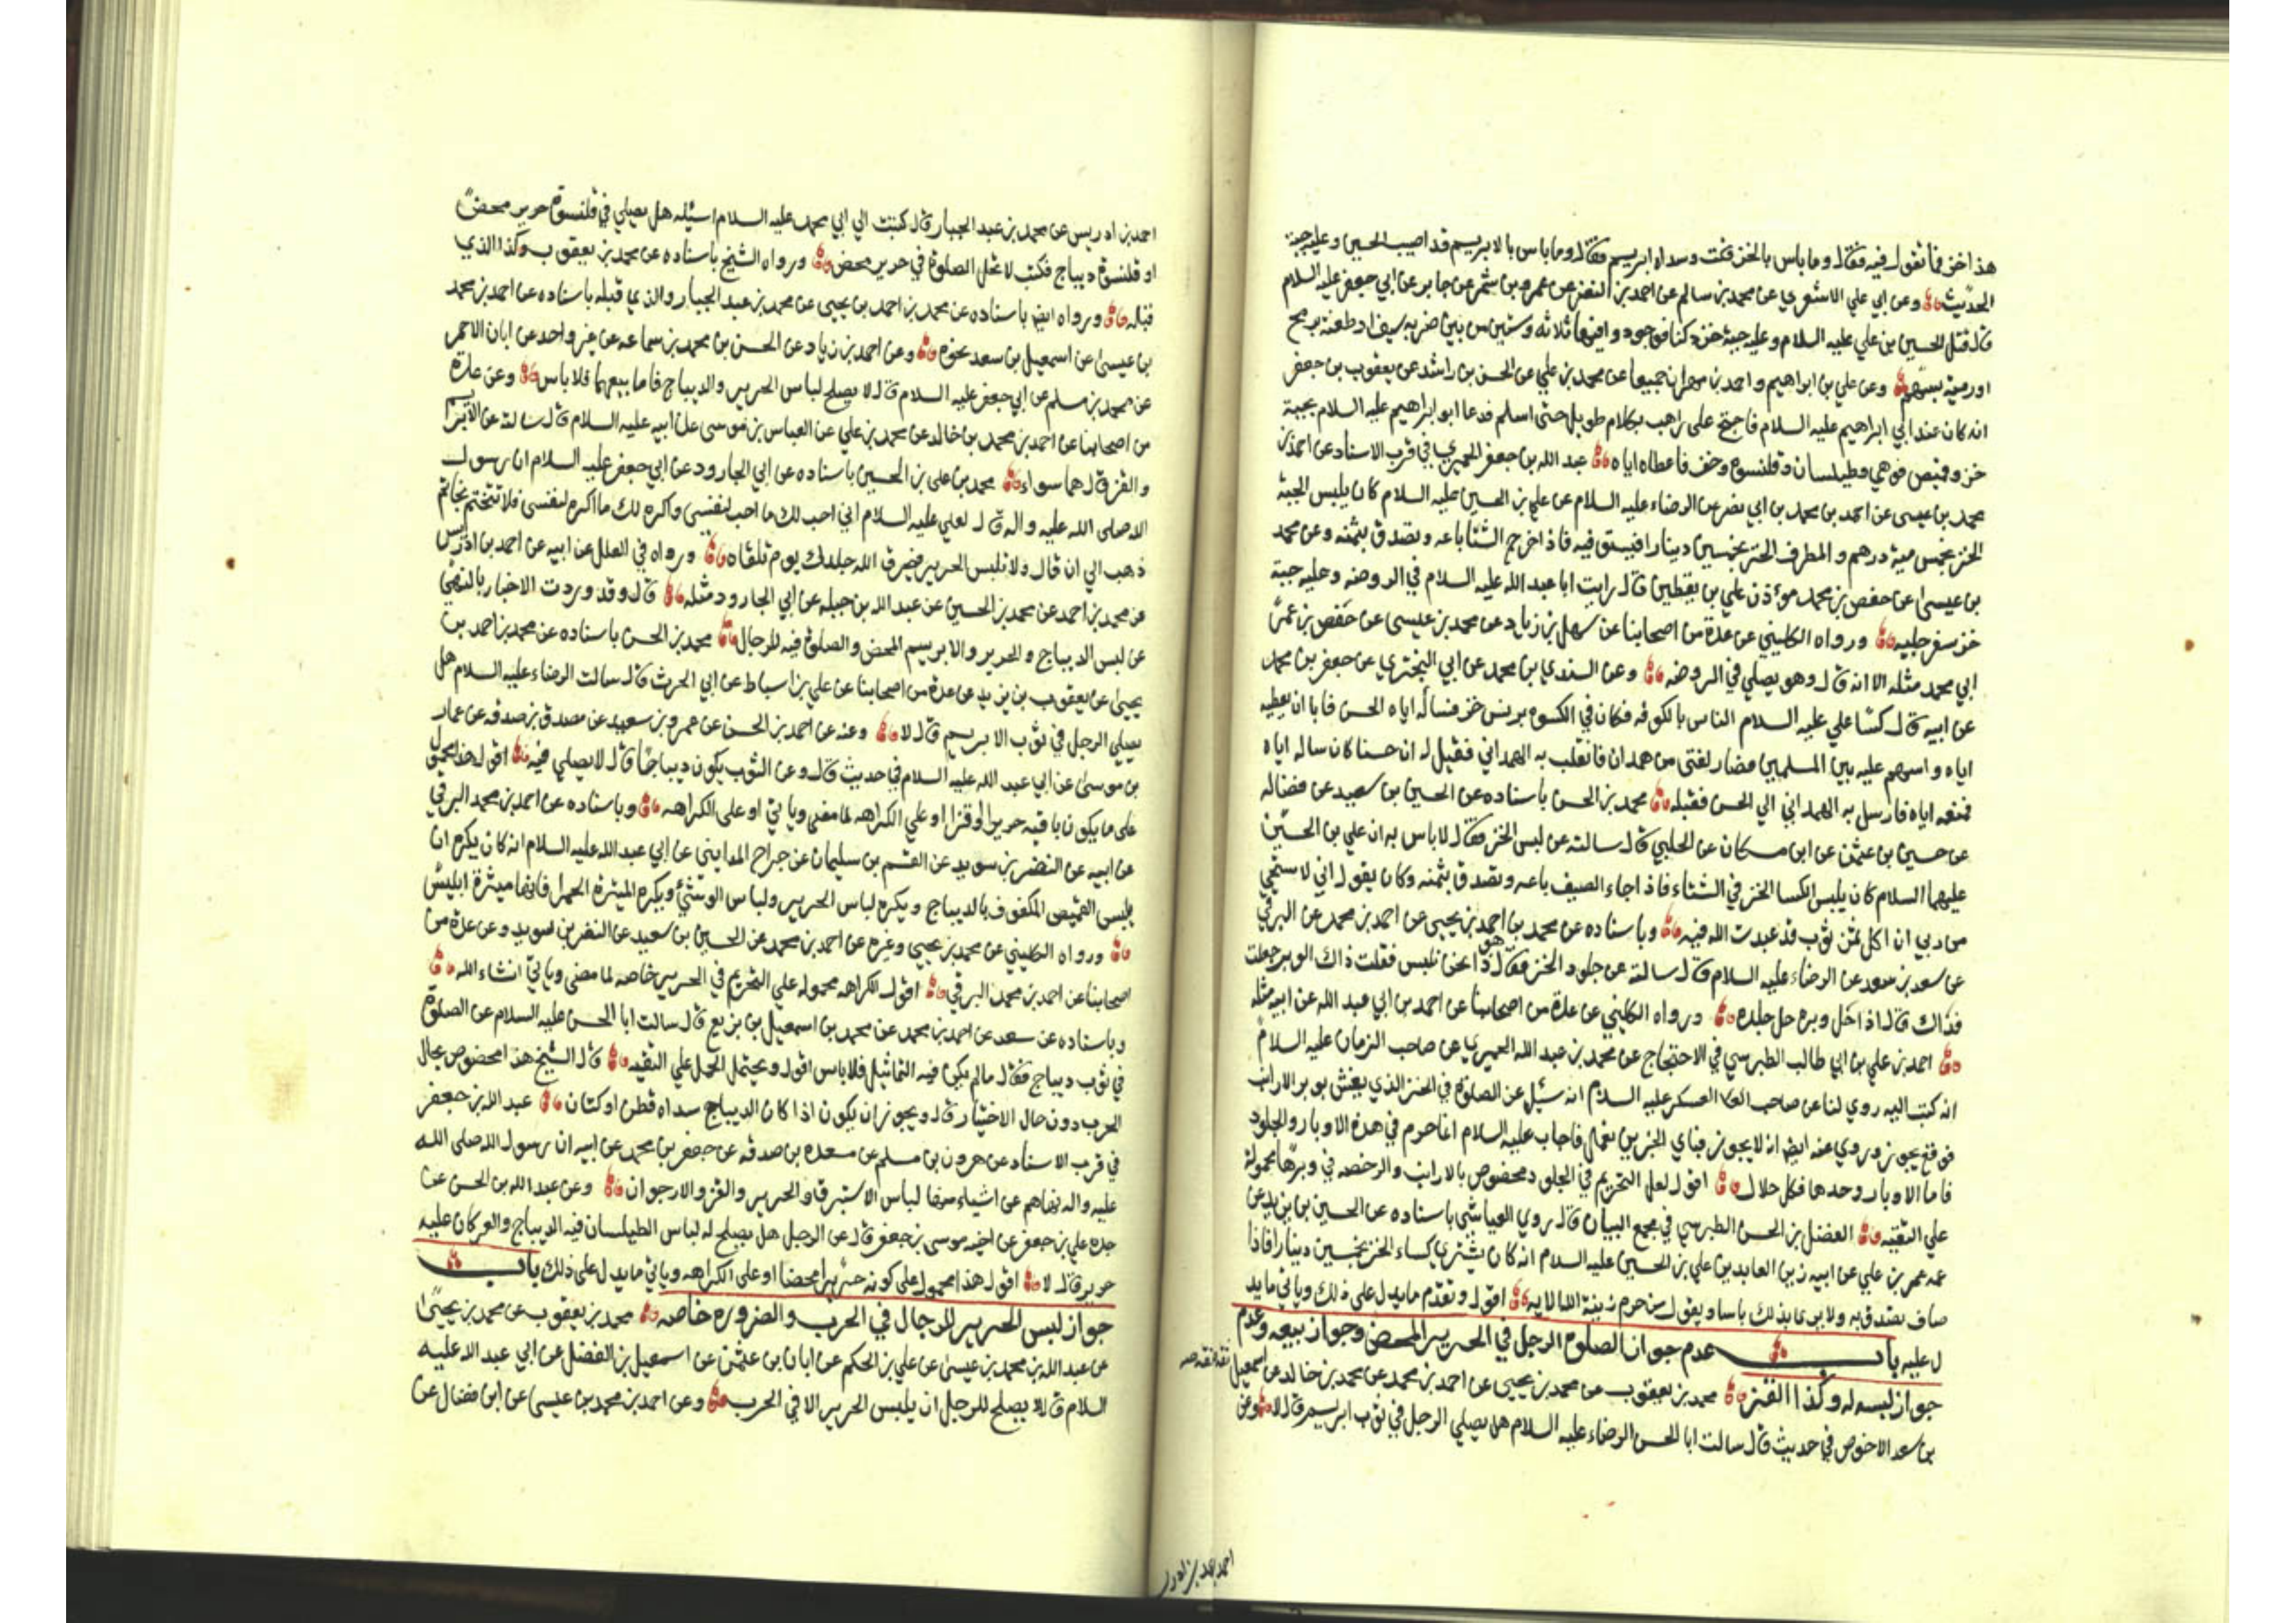 هذا خز فما تقول فيه فقال وما باس بالخز قلت وسداه ابريسم فقال وما باس بالابريسم قد اصيب الحسين وعليه جبة
الحديث وعن ابي علي الاشعري عن محمد بن سالم عن احمد بن النضر عن عمرو بن شمر عن جابر عن ابي جعفر عليه السلام
قال قتل الحسين بن علي عليه السلام وعليه جبة خز دكنا فوجدوا فيها ثلاثه وستين من بين ضربه بسيف او طعنة برمح
او رمية بسهم وعن علي بن ابراهيم واحمد بن مهران جميعا عن محمد بن علي عن الحسن بن راشد عن يعقوب بن جعفر
انه كان عند ابي ابراهيم عليه السلام فاحتج على راهب بكلام طويل حتى اسلم فدعا ابو ابراهيم عليه السلام بجبة
خز وقميص قوهي وطيلسان وقلنسوة وخف فاعطاه اياه عبد الله بن جعفر الحميري في قرب الاسناد عن احمد بن
محمد بن عيسى عن احمد بن محمد بن ابي نصر عن الرضاء عليه السلام عن علي بن الحسين عليه السلام كان يلبس الجبة
الخز بخمس مية درهم والمطرف الخز بخمسين دينارا فيستق فيه فاذا خرج الشتا باعه وتصدق بثمنه وعن محمد
بن عيسى عن حفص بن محمد موءذن علي بن يقطين قال رايت ابا عبد الله عليه السلام في الروضه وعليه جبة
خز سفرجليه ورواه الكليني عن عدة من اصحابنا عن سهل بن زياد عن محمد بن عيسى عن حفص بن عمر
ابي محمد مثله الا انه قال وهو يصلي في الروضه وعن السندي بن محمد عن ابي البختري عن جعفر بن محمد
عن ابيه قال كسا علي عليه السلام الناس بالكوفه فكان في الكسوه برنس خز فساله اياه الحسن فابا ان يعطيه
اياه واسهم عليه بين المسلمين فصار لفتى من همدان فانقلب به الهمداني فقيل له ان حسنا كان ساله اياه
فمنعه اياه فارسل به الهمداني الي الحسن فقبله محمد بن الحسن باسناده عن الحسين بن سعيد عن فضاله
عن حسين بن عثمن عن ابن مسكان عن الحلبي قال سالته عن لبس الخز فقال لا باس به ان علي بن الحسين
عليهما السلام كان يلبس الكسا الخز في الشتاء فاذا جاء الصيف باعه وتصدق بثمنه وكان يقول اني لاستحي
من ربي ان اكل ثمن ثوب قد عبدت الله فيه وباسناده عن محمد بن احمد بن يحيى عن احمد بن محمد عن البرقي
عن سعد بن سعد عن الرضاء عليه السلام قال سالته عن جلود الخز فقال هو ذا نحن نلبس فقلت ذاك الوبر جعلت
فداك قال اذا حل وبره حل جلده ورواه الكليني عن عدة من اصحابنا عن احمد بن ابي عبد الله عن ابيه مثله
احمد بن علي بن ابي طالب الطبرسي في الاحتجاج عن محمد بن عبد الله الحميري عن صاحب الزمان عليه السلام
انه كتب اليه روي لنا عن صاحب العسكر عليه السلام انه سئل عن الصلوة في الخز الذي يغش بوبر الارانب
فوقع يجوز وروي عنه ايضا انه لا يجوز فباي الخبرين نعمل فاجاب عليه السلام انما حرم في هذه الاوبار والجلود
فاما الاوبار وحدها فكل حلال اقول لعل التحريم في الجلود مخصوص بالارانب والرخصه في وبرها محمولة
على التقيه الفضل بن الحسن الطبرسي في مجمع البيان قال روي العياشي باسناده عن الحسين بن زيد عن
عمه عمر بن علي عن ابيه زين العابدين علي بن الحسين عليه السلام انه كان يشتري كساء الخز بخمسين دينارا فاذا
صاف تصدق به ولا يرى بذلك باسا ويقول من حرم زينة الله الايه اقول وتقدم ما يدل على ذلك وياتي ما يد
ل عليه باب عدم جواز الصلوة الرجل في الحرير المحض وجواز بيعه وعدم
جواز لبسه له وكذا القز محمد بن يعقوب عن محمد بن يحيى عن احمد بن محمد عن محمد بن خالد عن اسمعيل
بن سعد الاحوص في حديث قال سالت ابا الحسن الرضاء عليه السلام هل يصلي الرجل في ثوب ابريسم قال لا وعن
احمد بن ادريس عن محمد بن عبد الجبار قال كتبت الي ابي محمد عليه السلام اسئله هل يصلي في قلنسوة حرير محض
او قلنسوة ديباج فكتب لا تحل الصلوة في حرير محض ورواه الشيخ باسناده عن محمد بن يعقوب وكذا الذي
قبله ورواه ايضا باسناده عن محمد بن احمد بن يحيى عن محمد بن عبد الجبار والذي قبله باسناده عن احمد بن محمد
بن عيسى عن اسمعيل بن سعد نحوه وعن احمد بن زياد عن الحسن بن محمد بن سماعه عن غير واحد عن ابان الاحمر
عن محمد بن مسلم عن ابي جعفر عليه السلام قال لا يصلح لباس الحرير والديباج فاما بيعهما فلا باس وعن عدة
من اصحابنا عن احمد بن محمد بن خالد عن محمد بن علي عن العباس بن موسى عن ابيه عليه السلام قال سالته عن الابريسم
والقز قال هما سواء محمد بن علي بن الحسين باسناده عن ابي الجارود عن ابي جعفر عليه السلام ان رسول
الله صلى الله عليه واله قال لعلي عليه السلام اني احب لك ما احب لنفسي واكره لك ما اكره لنفسي فلا تتختم بخاتم
ذهب الي ان قال ولا تلبس الحرير فيحرق الله جلدك يوم تلقاه ورواه في العلل عن ابيه عن احمد بن ادريس
عن محمد بن احمد عن محمد بن الحسين عن عبد الله بن جبله عن ابي الجارود مثله قال وقد وردت الاخبار بالنهي
عن لبس الديباج والحرير والابريسم المحض والصلوة فيه للرجال محمد بن الحسن باسناده عن محمد بن احمد بن
يحيى عن يعقوب بن يزيد عن عدة من اصحابنا عن علي بن اسباط عن ابي الحرث قال سالت الرضاء عليه السلام هل
يصلي الرجل في ثوب الابريسم قال لا وعنه عن احمد بن الحسن عن عمرو بن سعيد عن مصدق بن صدقه عن عمار
بن موسى عن ابي عبد الله عليه السلام في حديث قال وعن الثوب يكون ديباجا قال لا يصلي فيه اقول
على ما يكون باقيه حريرا او قزا او على الكراهه لما مضى وياتي او على الكراهه وباسناده عن احمد بن محمد البرقي
عن ابيه عن النضر بن سويد عن القسم بن سليمان عن جراح المدايني عن ابي عبد الله عليه السلام انه كان يكره ان
يلبس القميص المكفوف بالديباج ويكره لباس الحرير ولباس الوشي ويكره الميثرة الحمرا فانها ميثرة ابليس
ورواه الكليني عن محمد بن يحيى وغيره عن احمد بن محمد عن الحسين بن سعيد عن النضر بن سويد وعن عدة من
اصحابنا عن احمد بن محمد البرقي اقول الكراهه محموله على التحريم في الحرير خاصه لما مضى وياتي انشاء الله
وباسناده عن سعد عن احمد بن محمد عن محمد بن اسمعيل بن بزيع قال سالت ابا الحسن عليه السلام عن الصلوة
في ثوب ديباج فقال ما لم يكن فيه التماثيل فلا باس اقول ويحتمل الحمل على التقيه قال الشيخ هذا مخصوص بحال
الحرب دون حال الاختيار قال ويجوز ان يكون اذا كان الديباج سداه قطن او كتان عبد الله بن جعفر
في قرب الاسناد عن هرون بن مسلم عن مسعده بن صدقه عن جعفر بن محمد عن ابيه ان رسول الله صلى الله
عليه واله نهاهم عن اشياء منها لباس الاستبرق والحرير والقز والارجوان وعن عبد الله بن الحسن عن
جده علي بن جعفر عن اخيه موسى بن جعفر قال عن الرجل هل يصلح له لباس الطيلسان فيه الديباج والبركان عليه
حرير قال لا اقول هذا محمول على كونه حريرا محضا او على الكراهه وياتي ما يدل على ذلك باب
جواز لبس الحرير للرجال في الحرب والضروره خاصه محمد بن يعقوب عن محمد بن يحيى
عن عبد الله بن محمد بن عيسى عن علي بن الحكم عن ابان بن عثمن عن اسمعيل بن الفضل عن ابي عبد الله عليه
السلام قال لا يصلح للرجل ان يلبس الحرير الا في الحرب وعن احمد بن محمد بن عيسى عن ابن فضال عن